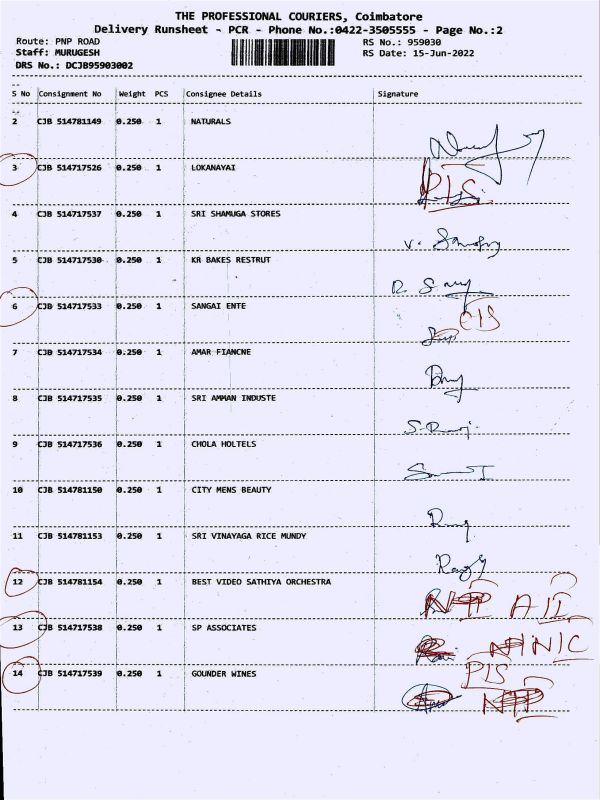 THE PROFESSIONAL COURIERS, Coimbatore
Delivery Runsheet - PCR - Phone No.:0422-3505555 - Page No.:2
Route: PNP ROAD RS No.: 959030
Staff: MURUGESH RS Date: 15-Jun-2022
DRS No.: DCJB95903002
S No Consignment No Weight PCS Consignee Details Signature
2 CJB 514781149 0.250 1 NATURALS
3 CJB 514717526 0.250 1 LOKANAYAI
PIS
4 CJB 514717537 0.250 1 SRI SHAMUGA STORES
5 CJB 514717530 0.250 1 KR BAKES RESTRUT
6 CJB 514717533 0.250 1 SANGAI ENTE
CIS
7 CJB 514717534 0.250 1 AMAR FIANCNE
8 CJB 514717535 0.250 1 SRI AMMAN INDUSTE
9 CJB 514717536 0.250 1 CHOLA HOLTELS
10 CJB 514781150 0.250 1 CITY MENS BEAUTY
11 CJB 514781153 0.250 1 SRI VINAYAGA RICE MUNDY
12 CJB 514781154 0.250 1 BEST VIDEO SATHIYA ORCHESTRA
13 CJB 514717538 0.250 1 SP ASSOCIATES
14 CJB 514717539 0.250 1 GOUNDER WINES
PIS